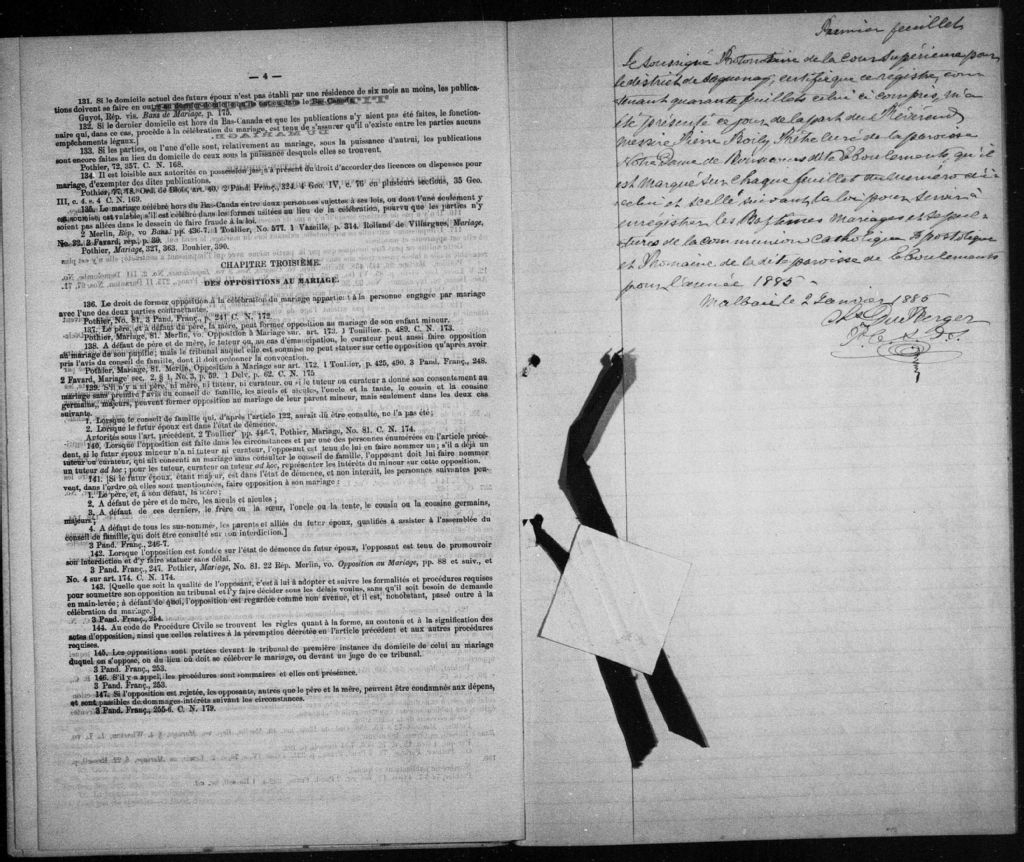 — 4 —
131. Si le domicile actuel des futurs époux n'est pas établi par une résidence de six mois au moins, les publica-
tions doivent se faire en outre au dernier domicile qu'ils ont eu dans le Bas-Canada.
Guyot, Rép. vis. Bans de Mariage, p. 175.
132. Si le dernier domicile est hors du Bas-Canada et que les publications n'y aient pas été faites, le fonction-
naire qui, dans ce cas, procède à la célébration du mariage, est tenu de s'assurer qu'il n'existe entre les parties aucuns
empêchements légaux.]
133. Si les parties, ou l'une d'elle sont, relativement au mariage, sous la puissance d'autrui, les publications
sont encore faites au lieu du domicile de ceux sous la puissance desquels elles se trouvent.
Pothier, 72, 357. C. N. 168.
134. Il est loisible aux autorités en possession jusqu'à présent du droit d'accorder des licences ou dispenses pour
mariage, d'exempter des dites publications.
Pothier, 77, 78. Ord. de Blois, art. 40. 2 Pand. Franç., 324. 4 Geo. IV, c. 76 en plusieurs sections, 35 Geo.
III, c. 4. s. 4 C. N. 169.
135. Le mariage célébré hors du Bas-Canda entre deux personnes sujettes à ses lois, ou dont l'une seulement y
est soumise, est valable, s'il est célébré dans les formes usitées au lieu de la célébration, pourvu que les parties n'y
soient pas allées dans le dessein de faire fraude à la loi.
2 Merlin, Rép, vo Bans. pp. 436-7. 1 Toullier, No. 577. 1 Vazeille, p. 314. Rolland de Villargues, Mariage,
No. 22. 2 Favard, rép., p.
Pothier, Mariage, 327, 363. Bouhier, 390.
CHAPITRE TROISIÈME.
DES OPPOSITIONS AU MARIAGE.
136. Le droit de former opposition à la célébration du mariage appartient à la personne engagée par mariage
avec l'une des deux parties contractantes.
Pothier, No. 81. 3 Pand. Franç., p. 241 C. N. 172.
137. Le père, et à défaut du père, la mère, peut former opposition au mariage de son enfant mineur.
Pothier, Mariage, 81. Merlin, vo. Opposition à Mariage sur. art. 173. 1 Toullier. p. 489. C. N. 173.
138. A défaut de père et de mère, le tuteur ou, au cas d'émancipation, le curateur peut aussi faire opposition
au mariage de son pupille; mais le tribunal auquel elle est soumise ne peut statuer sur cette opposition qu'après avoir
pris l'avis du conseil de famille, dont il doit ordonner la convocation.
Pothier, Mariage, 81. Merlin, Opposition à Mariage sur art. 172. 1 Toullier, p. 425, 490. 3 Pand. Franç., 248.
2 Favard, Mariage sec. 2, § 1, No. 3, p. 59. 1 Delv. p. 62. C. N. 175
139. S'il n'y a ni père, ni mère, ni tuteur, ni curateur, ou si le tuteur ou curateur a donné son consentement au
mariage sans prendre l'avis du conseil de famille, les aïeuls et aïeules, l'oncle et la tante, le cousin et la cousine
germains, majeurs, peuvent former opposition au mariage de leur parent mineur, mais seulement dans les deux cas
suivants.
1. Lorsque le conseil de famille qui, d'après l'article 122, aurait dû être consulté, ne l'a pas été;
2. Lorsque le futur époux est dans l'état de démence.
Autorités sous l'art. précédent. 2 Toullier pp. 446-7. Pothier, Mariage, No. 81. C. N. 174.
140. Lorsque l'opposition est faite dans les circonstances et par une des personnes énumérées en l'article précé-
dent, si le futur époux mineur n'a ni tuteur ni curateur, l'opposant est tenu de lui en faire nommer un; s'il a déjà un
tuteur ou curateur, qui ait consenti au mariage sans consulter le conseil de famille, l'opposant doit lui faire nommer
un tuteur ad hoc; pour les tuteur, curateur ou tuteur ad hoc, représenter les intérêts du mineur sur cette opposition.
141. [Si le futur époux, étant majeur, est dans l'état de démence, et non interdit, les personnes suivantes peu-
vent, dans l'ordre où elles sont mentionnées, faire opposition à son mariage:
1. Le père, et, à son défaut, la mère;
2. A défaut de père et de mère, les aïeuls et aïeules;
3. A défaut de ces derniers, le frère ou la sœur, l'oncle ou la tante, le cousin ou la cousine germains,
majeurs;
4. A défaut de tous les sus-nommés, les parents et alliés du futur époux, qualifiés à assister à l'assemblée du
conseil de famille, qui doit être consulté sur son interdiction.]
3 Pand. Franç., 246-7.
142. Lorsque l'opposition est fondée sur l'état de démence du futur époux, l'opposant est tenu de promouvoir
son interdiction et d'y faire statuer sans délai.
3 Pand. Franç., 247. Pothier, Mariage, No. 81. 22 Rép. Merlin, vo. Opposition au Mariage, pp. 88 et suiv., et
No. 4 sur art. 174. C. N. 174.
143. [Quelle que soit la qualité de l'opposant, c'est à lui à adopter et suivre les formalités et procédures requises
pour soumettre son opposition au tribunal et l'y faire décider sous les délais voulus, sans qu'il soit besoin de demande
en main-levée; à défaut de quoi, l'opposition est regardée comme non avenue, et il est, nonobstant, passé outre à la
célébration du mariage.]
3 Pand. Franç., 254.
144. Au code de Procédure Civile se trouvent les règles quant à la forme, au contenu et à la signification des
actes d'opposition, ainsi que celles relatives à la péremption décrétée en l'article précédent et aux autres procédures
requises.
145. Les oppositions sont portées devant le tribunal de première instance du domicile de celui au mariage
duquel on s'oppose, ou du lieu où doit se célébrer le mariage, ou devant un juge de ce tribunal.
3 Pand. Franç., 253.
146. S'il y a appel, les procédures sont sommaires et elles ont préséance.
3 Pand. Franç., 253.
147. Si l'opposition est rejetée, les opposants, autres que le père et la mère, peuvent être condamnés aux dépens,
et sont passibles de dommages-intérêts suivant les circonstances.
3 Pand. Franç., 255-6. C. N. 179.
Premier feuillet
Le soussigné Protonotaire de la cour Supérieure pour
le district de Saguenay, certifie que ce registre, con-
tenant quarante feuillets celui ci compris, m'a
été présenté ce jour de la part du Révérend
messire Pierre Boily Ptre Curé de la paroisse
Notre Dame de dite Eboulements, qu'il
est marqué sur chaque feuillet du numéro d'i-
celui et scellé suivant la loi pour servir à
enregistrer les Baptêmes Mariages et Sépul-
tures de la communion Catholique Apostolique
et Romaine de la dite paroisse de Eboulements
pour l'année 1885 -
Malbaie le 2 Janvier 1885
Chs Du Berger
P. C. S. D. S.